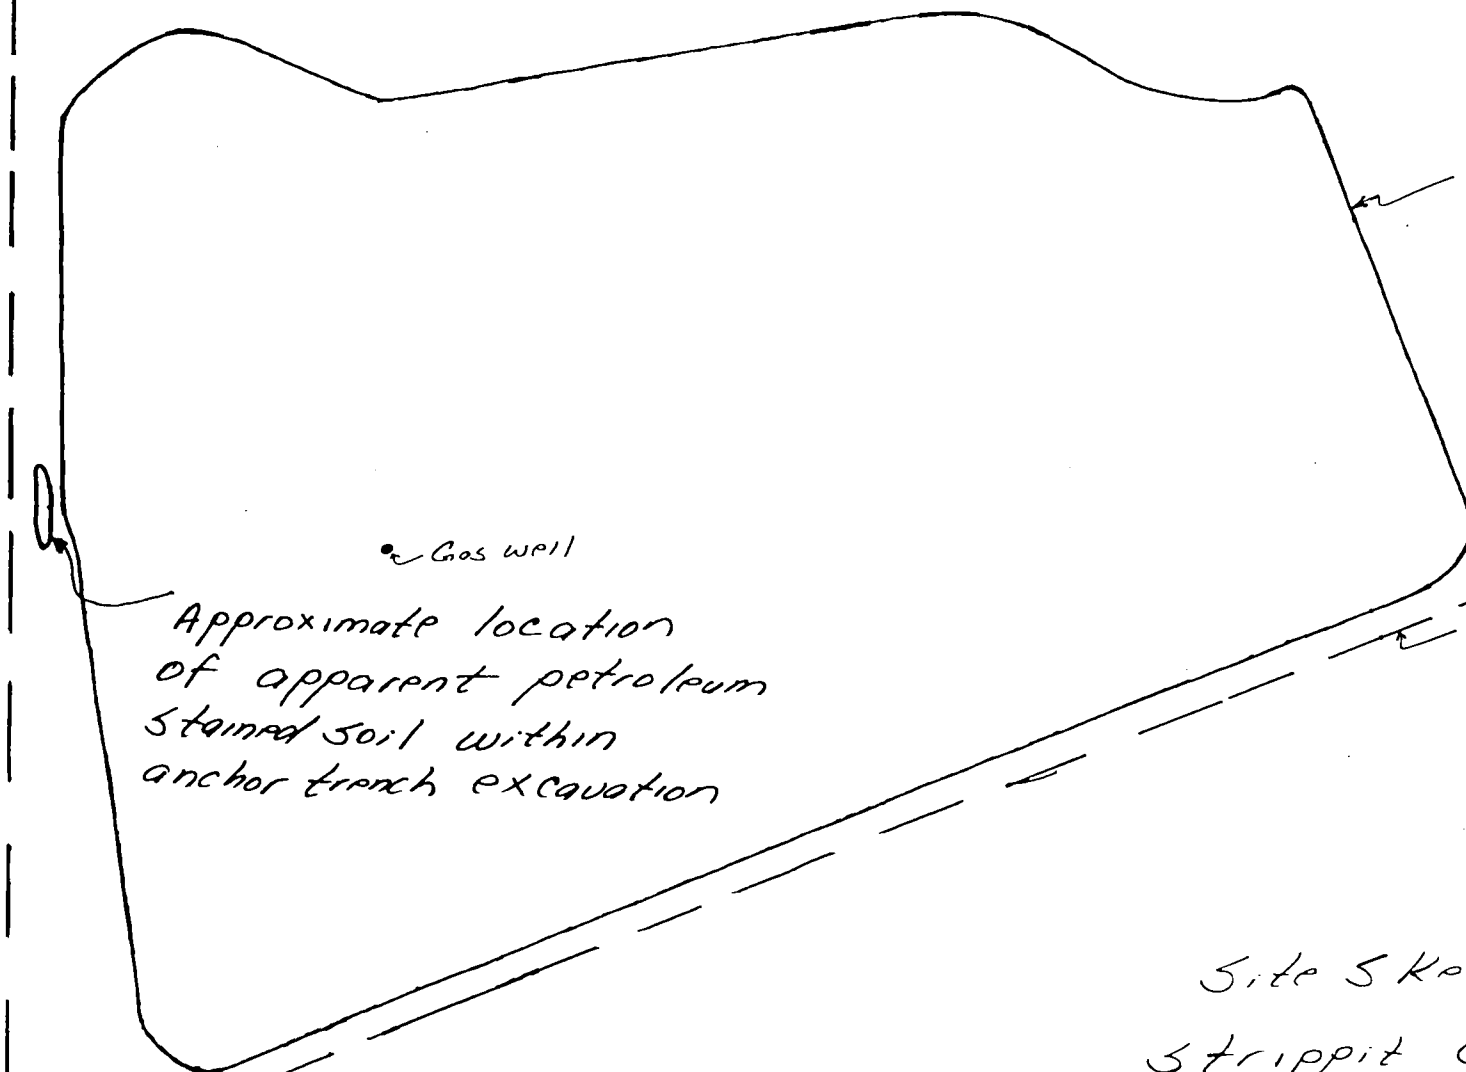 Gas well
Approximate location
of apparent petroleum
stained soil within
anchor trench excavation
Site Ske
Strippit C